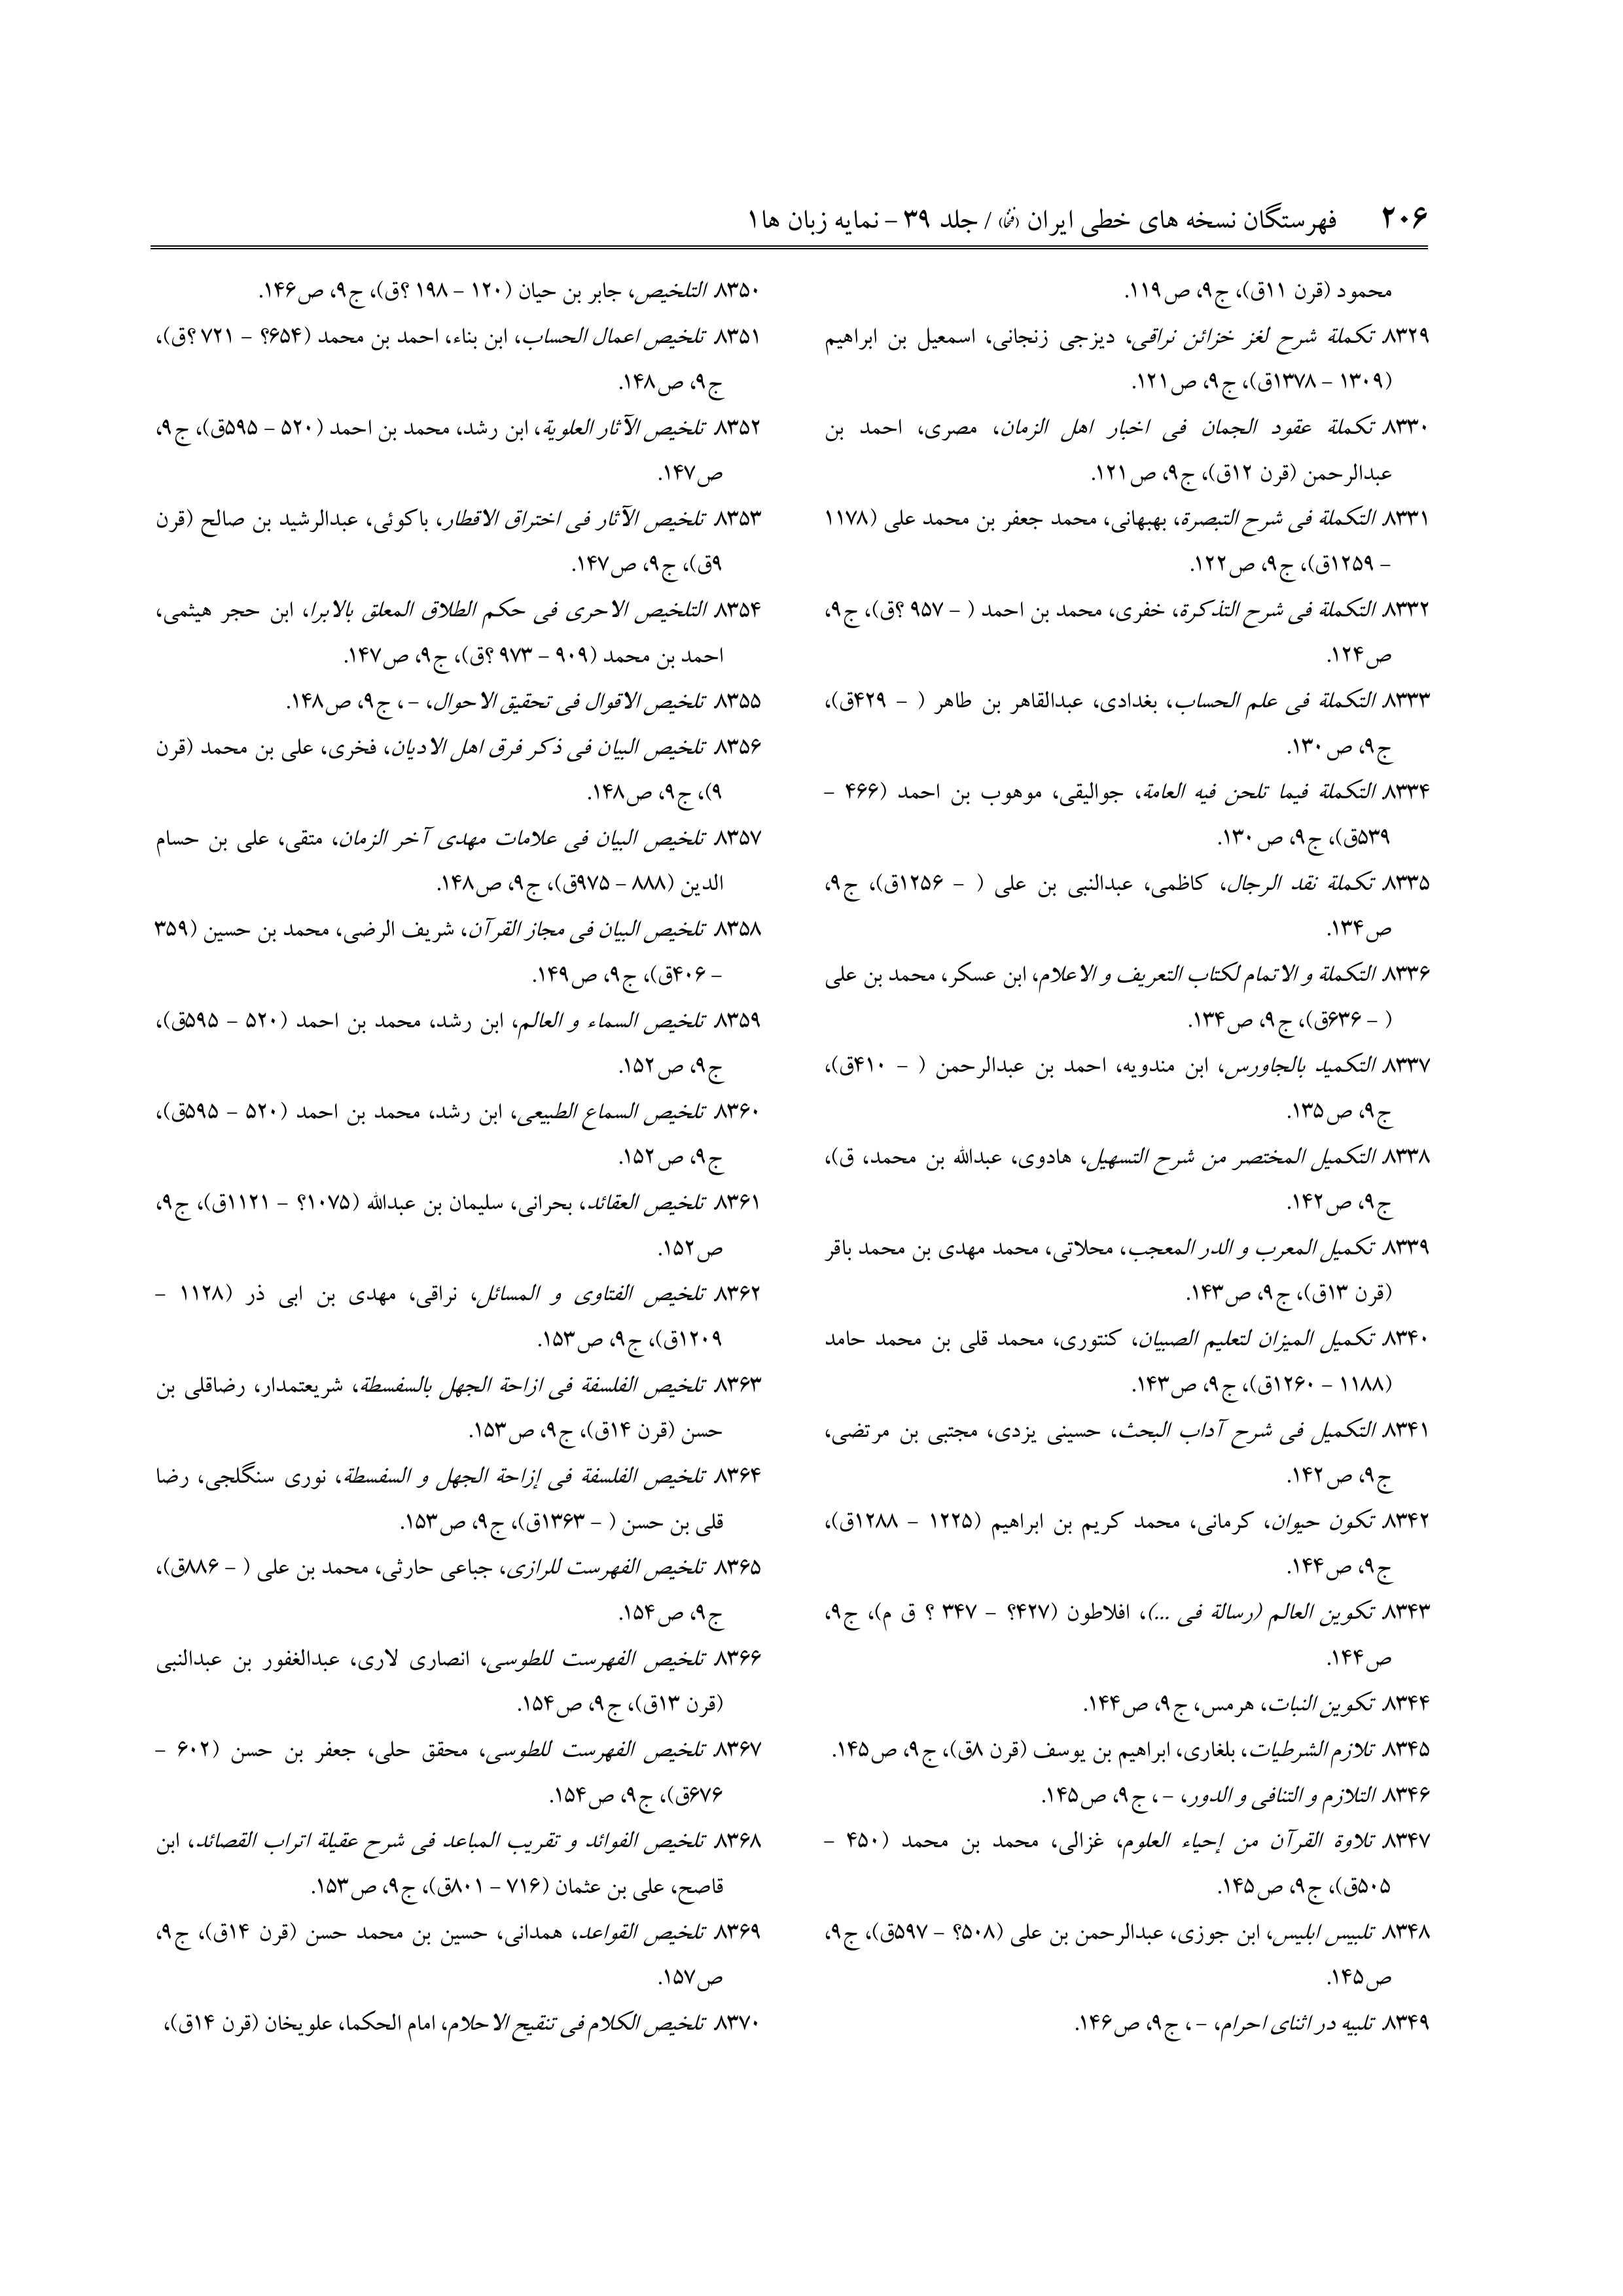 ۲۰۶ فهرستگان نسخه های خطی ایران (فنخا) / جلد ۳۹ – نمایه زبان ها۱
محمود (قرن ۱۱ق)، ج۹، ص۱۱۹.
۸۳۲۹. تکملة شرح لغز خزائن نراقی، دیزجی زنجانی، اسمعیل بن ابراهیم
(۱۳۰۹ – ۱۳۷۸ق)، ج۹، ص۱۲۱.
۸۳۳۰. تکملة عقود الجمان فی اخبار اهل الزمان، مصری، احمد بن
عبدالرحمن (قرن ۱۲ق)، ج۹، ص۱۲۱.
۸۳۳۱. التکملة فی شرح التبصرة، بهبهانی، محمد جعفر بن محمد علی (۱۱۷۸
– ۱۲۵۹ق)، ج۹، ص۱۲۲.
۸۳۳۲. التکملة فی شرح التذکرة، خفری، محمد بن احمد ( – ۹۵۷ ؟ق)، ج۹،
ص۱۲۴.
۸۳۳۳. التکملة فی علم الحساب، بغدادی، عبدالقاهر بن طاهر ( – ۴۲۹ق)،
ج۹، ص۱۳۰.
۸۳۳۴. التکملة فیما تلحن فیه العامة، جوالیقی، موهوب بن احمد (۴۶۶ –
۵۳۹ق)، ج۹، ص۱۳۰.
۸۳۳۵. تکملة نقد الرجال، کاظمی، عبدالنبی بن علی ( – ۱۲۵۶ق)، ج۹،
ص۱۳۴.
۸۳۳۶. التکملة و الاتمام لکتاب التعریف و الاعلام، ابن عسکر، محمد بن علی
( – ۶۳۶ق)، ج۹، ص۱۳۴.
۸۳۳۷. التکمید بالجاورس، ابن مندویه، احمد بن عبدالرحمن ( – ۴۱۰ق)،
ج۹، ص۱۳۵.
۸۳۳۸. التکمیل المختصر من شرح التسهیل، هادوی، عبدالله بن محمد، ق)،
ج۹، ص۱۴۲.
۸۳۳۹. تکمیل المعرب و الدر المعجب، محلاتی، محمد مهدی بن محمد باقر
(قرن ۱۳ق)، ج۹، ص۱۴۳.
۸۳۴۰. تکمیل المیزان لتعلیم الصبیان، کنتوری، محمد قلی بن محمد حامد
(۱۱۸۸ – ۱۲۶۰ق)، ج۹، ص۱۴۳.
۸۳۴۱. التکمیل فی شرح آداب البحث، حسینی یزدی، مجتبی بن مرتضی،
ج۹، ص۱۴۲.
۸۳۴۲. تکون حیوان، کرمانی، محمد کریم بن ابراهیم (۱۲۲۵ – ۱۲۸۸ق)،
ج۹، ص۱۴۴.
۸۳۴۳. تکوین العالم (رسالة فی ...)، افلاطون (۴۲۷؟ – ۳۴۷ ؟ ق م)، ج۹،
ص۱۴۴.
۸۳۴۴. تکوین النبات، هرمس، ج۹، ص۱۴۴.
۸۳۴۵. تلازم الشرطیات، بلغاری، ابراهیم بن یوسف (قرن ۸ق)، ج۹، ص۱۴۵.
۸۳۴۶. التلازم و التنافی و الدور، –، ج۹، ص۱۴۵.
۸۳۴۷. تلاوة القرآن من إحیاء العلوم، غزالی، محمد بن محمد (۴۵۰ –
۵۰۵ق)، ج۹، ص۱۴۵.
۸۳۴۸. تلبیس ابلیس، ابن جوزی، عبدالرحمن بن علی (۵۰۸؟ – ۵۹۷ق)، ج۹،
ص۱۴۵.
۸۳۴۹. تلبیه در اثنای احرام، –، ج۹، ص۱۴۶.
۸۳۵۰. التلخیص، جابر بن حیان (۱۲۰ – ۱۹۸ ؟ق)، ج۹، ص۱۴۶.
۸۳۵۱. تلخیص اعمال الحساب، ابن بناء، احمد بن محمد (۶۵۴؟ – ۷۲۱ ؟ق)،
ج۹، ص۱۴۸.
۸۳۵۲. تلخیص الآثار العلویة، ابن رشد، محمد بن احمد (۵۲۰ – ۵۹۵ق)، ج۹،
ص۱۴۷.
۸۳۵۳. تلخیص الآثار فی اختراق الاقطار، باکوئی، عبدالرشید بن صالح (قرن
۹ق)، ج۹، ص۱۴۷.
۸۳۵۴. التلخیص الاحری فی حکم الطلاق المعلق بالابرا، ابن حجر هیثمی،
احمد بن محمد (۹۰۹ – ۹۷۳ ؟ق)، ج۹، ص۱۴۷.
۸۳۵۵. تلخیص الاقوال فی تحقیق الاحوال، –، ج۹، ص۱۴۸.
۸۳۵۶. تلخیص البیان فی ذکر فرق اهل الادیان، فخری، علی بن محمد (قرن
۹)، ج۹، ص۱۴۸.
۸۳۵۷. تلخیص البیان فی علامات مهدی آخر الزمان، متقی، علی بن حسام
الدین (۸۸۸ – ۹۷۵ق)، ج۹، ص۱۴۸.
۸۳۵۸. تلخیص البیان فی مجاز القرآن، شریف الرضی، محمد بن حسین (۳۵۹
– ۴۰۶ق)، ج۹، ص۱۴۹.
۸۳۵۹. تلخیص السماء و العالم، ابن رشد، محمد بن احمد (۵۲۰ – ۵۹۵ق)،
ج۹، ص۱۵۲.
۸۳۶۰. تلخیص السماع الطبیعی، ابن رشد، محمد بن احمد (۵۲۰ – ۵۹۵ق)،
ج۹، ص۱۵۲.
۸۳۶۱. تلخیص العقائد، بحرانی، سلیمان بن عبدالله (۱۰۷۵؟ – ۱۱۲۱ق)، ج۹،
ص۱۵۲.
۸۳۶۲. تلخیص الفتاوی و المسائل، نراقی، مهدی بن ابی ذر (۱۱۲۸ –
۱۲۰۹ق)، ج۹، ص۱۵۳.
۸۳۶۳. تلخیص الفلسفة فی ازاحة الجهل بالسفسطة، شریعتمدار، رضاقلی بن
حسن (قرن ۱۴ق)، ج۹، ص۱۵۳.
۸۳۶۴. تلخیص الفلسفة فی إزاحة الجهل و السفسطة، نوری سنگلجی، رضا
قلی بن حسن ( – ۱۳۶۳ق)، ج۹، ص۱۵۳.
۸۳۶۵. تلخیص الفهرست للرازی، جباعی حارثی، محمد بن علی ( – ۸۸۶ق)،
ج۹، ص۱۵۴.
۸۳۶۶. تلخیص الفهرست للطوسی، انصاری لاری، عبدالغفور بن عبدالنبی
(قرن ۱۳ق)، ج۹، ص۱۵۴.
۸۳۶۷. تلخیص الفهرست للطوسی، محقق حلی، جعفر بن حسن (۶۰۲ –
۶۷۶ق)، ج۹، ص۱۵۴.
۸۳۶۸. تلخیص الفوائد و تقریب المباعد فی شرح عقیلة اتراب القصائد، ابن
قاصح، علی بن عثمان (۷۱۶ – ۸۰۱ق)، ج۹، ص۱۵۳.
۸۳۶۹. تلخیص القواعد، همدانی، حسین بن محمد حسن (قرن ۱۴ق)، ج۹،
ص۱۵۷.
۸۳۷۰. تلخیص الکلام فی تنقیح الاحلام، امام الحکما، علویخان (قرن ۱۴ق)،